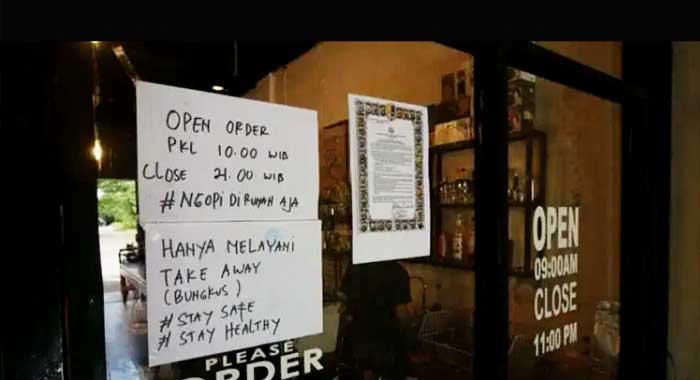 OPEN ORDER
PKL 10.00 WIB
CLOSE 21.00 WIB
#NGOPI DI RUMAH AJA
HANYA MELAYANI
TAKE AWAY
(BUNGKUS)
#STAY SAFE
#STAY HEALTHY
PLEASE
ORDER
OPEN
09:00AM
CLOSE
11:00 PM